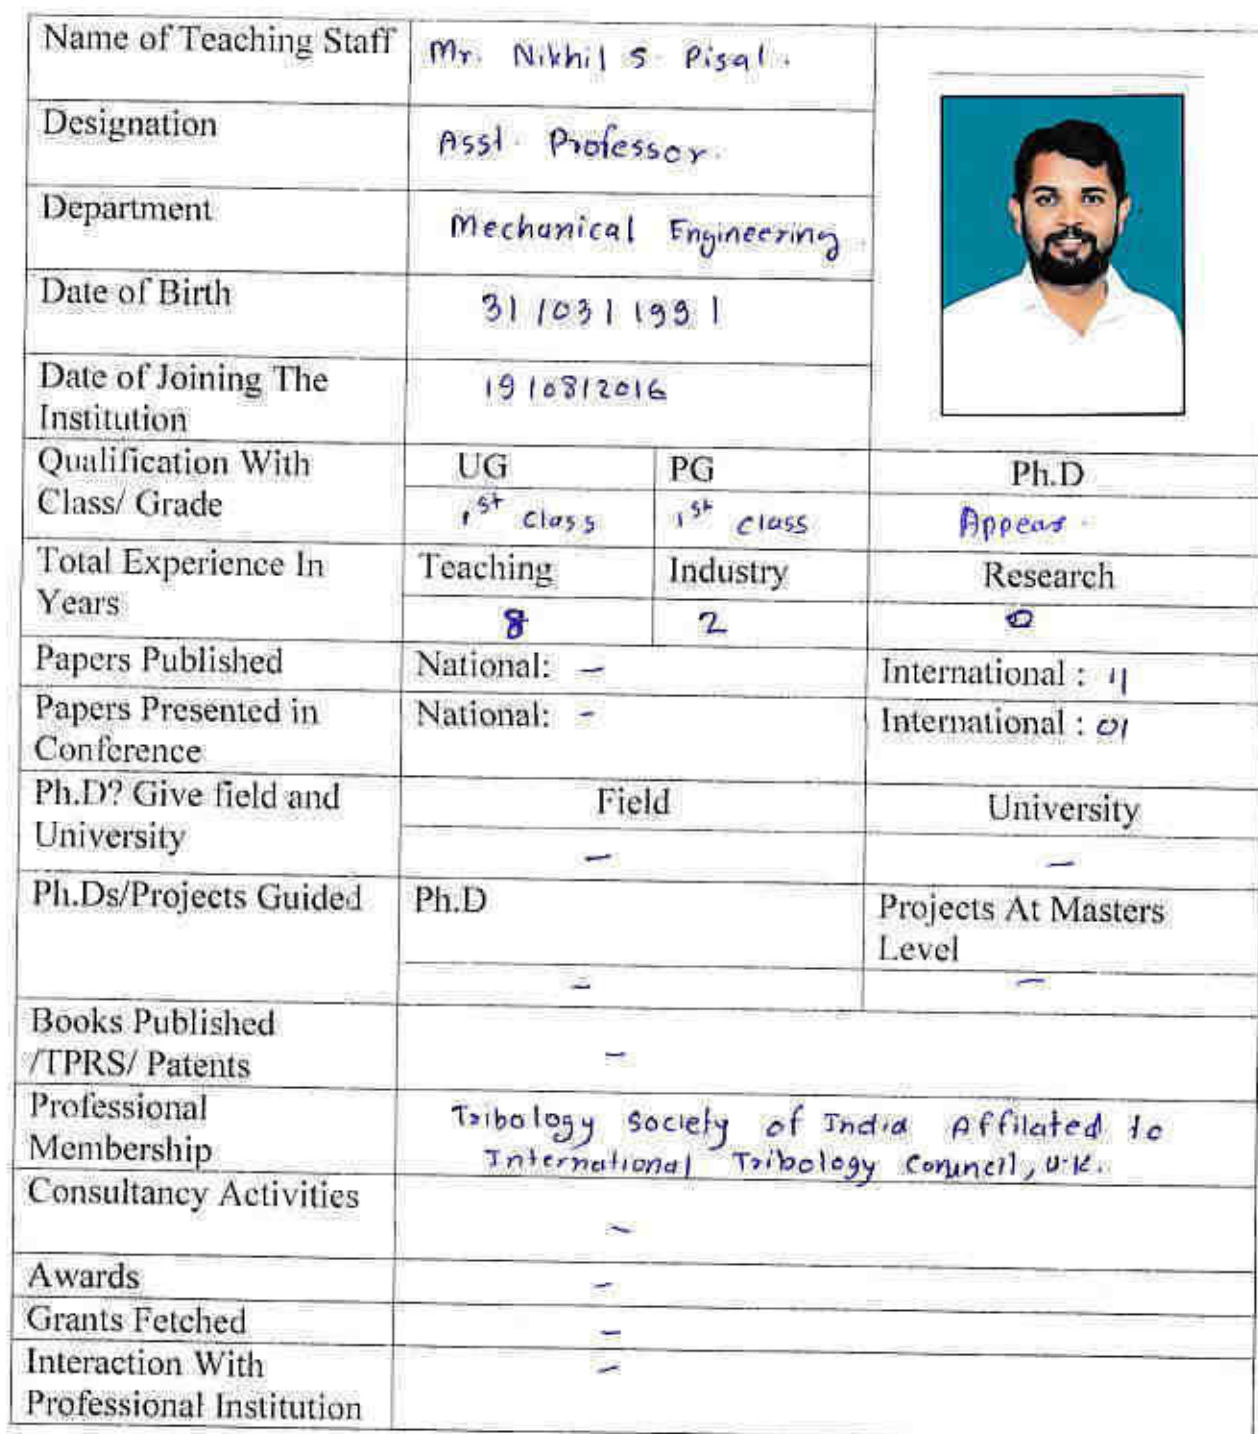 Name of Teaching Staff Mr. Nikhil S. Pisal.
Designation Asst. Professor.
Department Mechanical Engineering.
Date of Birth 31/03/1991
Date of Joining The 19/08/2016
Institution
Qualification With UG PG Ph.D
Class/ Grade 1st class 1st class Appear.
Total Experience In Teaching Industry Research
Years 8 2 0
Papers Published National: - International :
Papers Presented in National: - International : 01
Conference
Ph.D? Give field and Field University
University - -
Ph.Ds/Projects Guided Ph.D Projects At Masters
Level
- -
Books Published
/TPRS/ Patents -
Professional Tribology Society of India Affilated to
Membership International Tribology Council, U.K.
Consultancy Activities
-
Awards -
Grants Fetched -
Interaction With -
Professional Institution